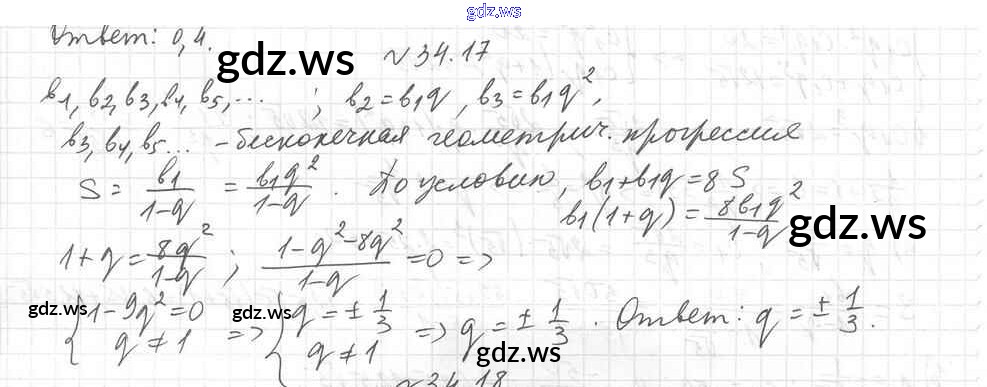 gdz.ws
Ответ: 0,4.
gdz.ws
№34.17
b1, b2, b3, b4, b5, ... ; b2 = b1q, b3 = b1q²,
b3, b4, b5... - бесконечная геометрич. прогрессия
S = b1/(1-q) = b1q²/(1-q). По условию, b1+b1q = 8S
b1(1+q) = 8b1q²/(1-q)
gdz.ws
1+q = 8q²/(1-q) ; (1-q²-8q²)/(1-q) = 0 =>
{1-9q²=0 q≠1 => {q=±1/3 q≠1 => q=±1/3. Ответ: q=±1/3.
gdz.ws gdz.ws
gdz.ws
№34.18